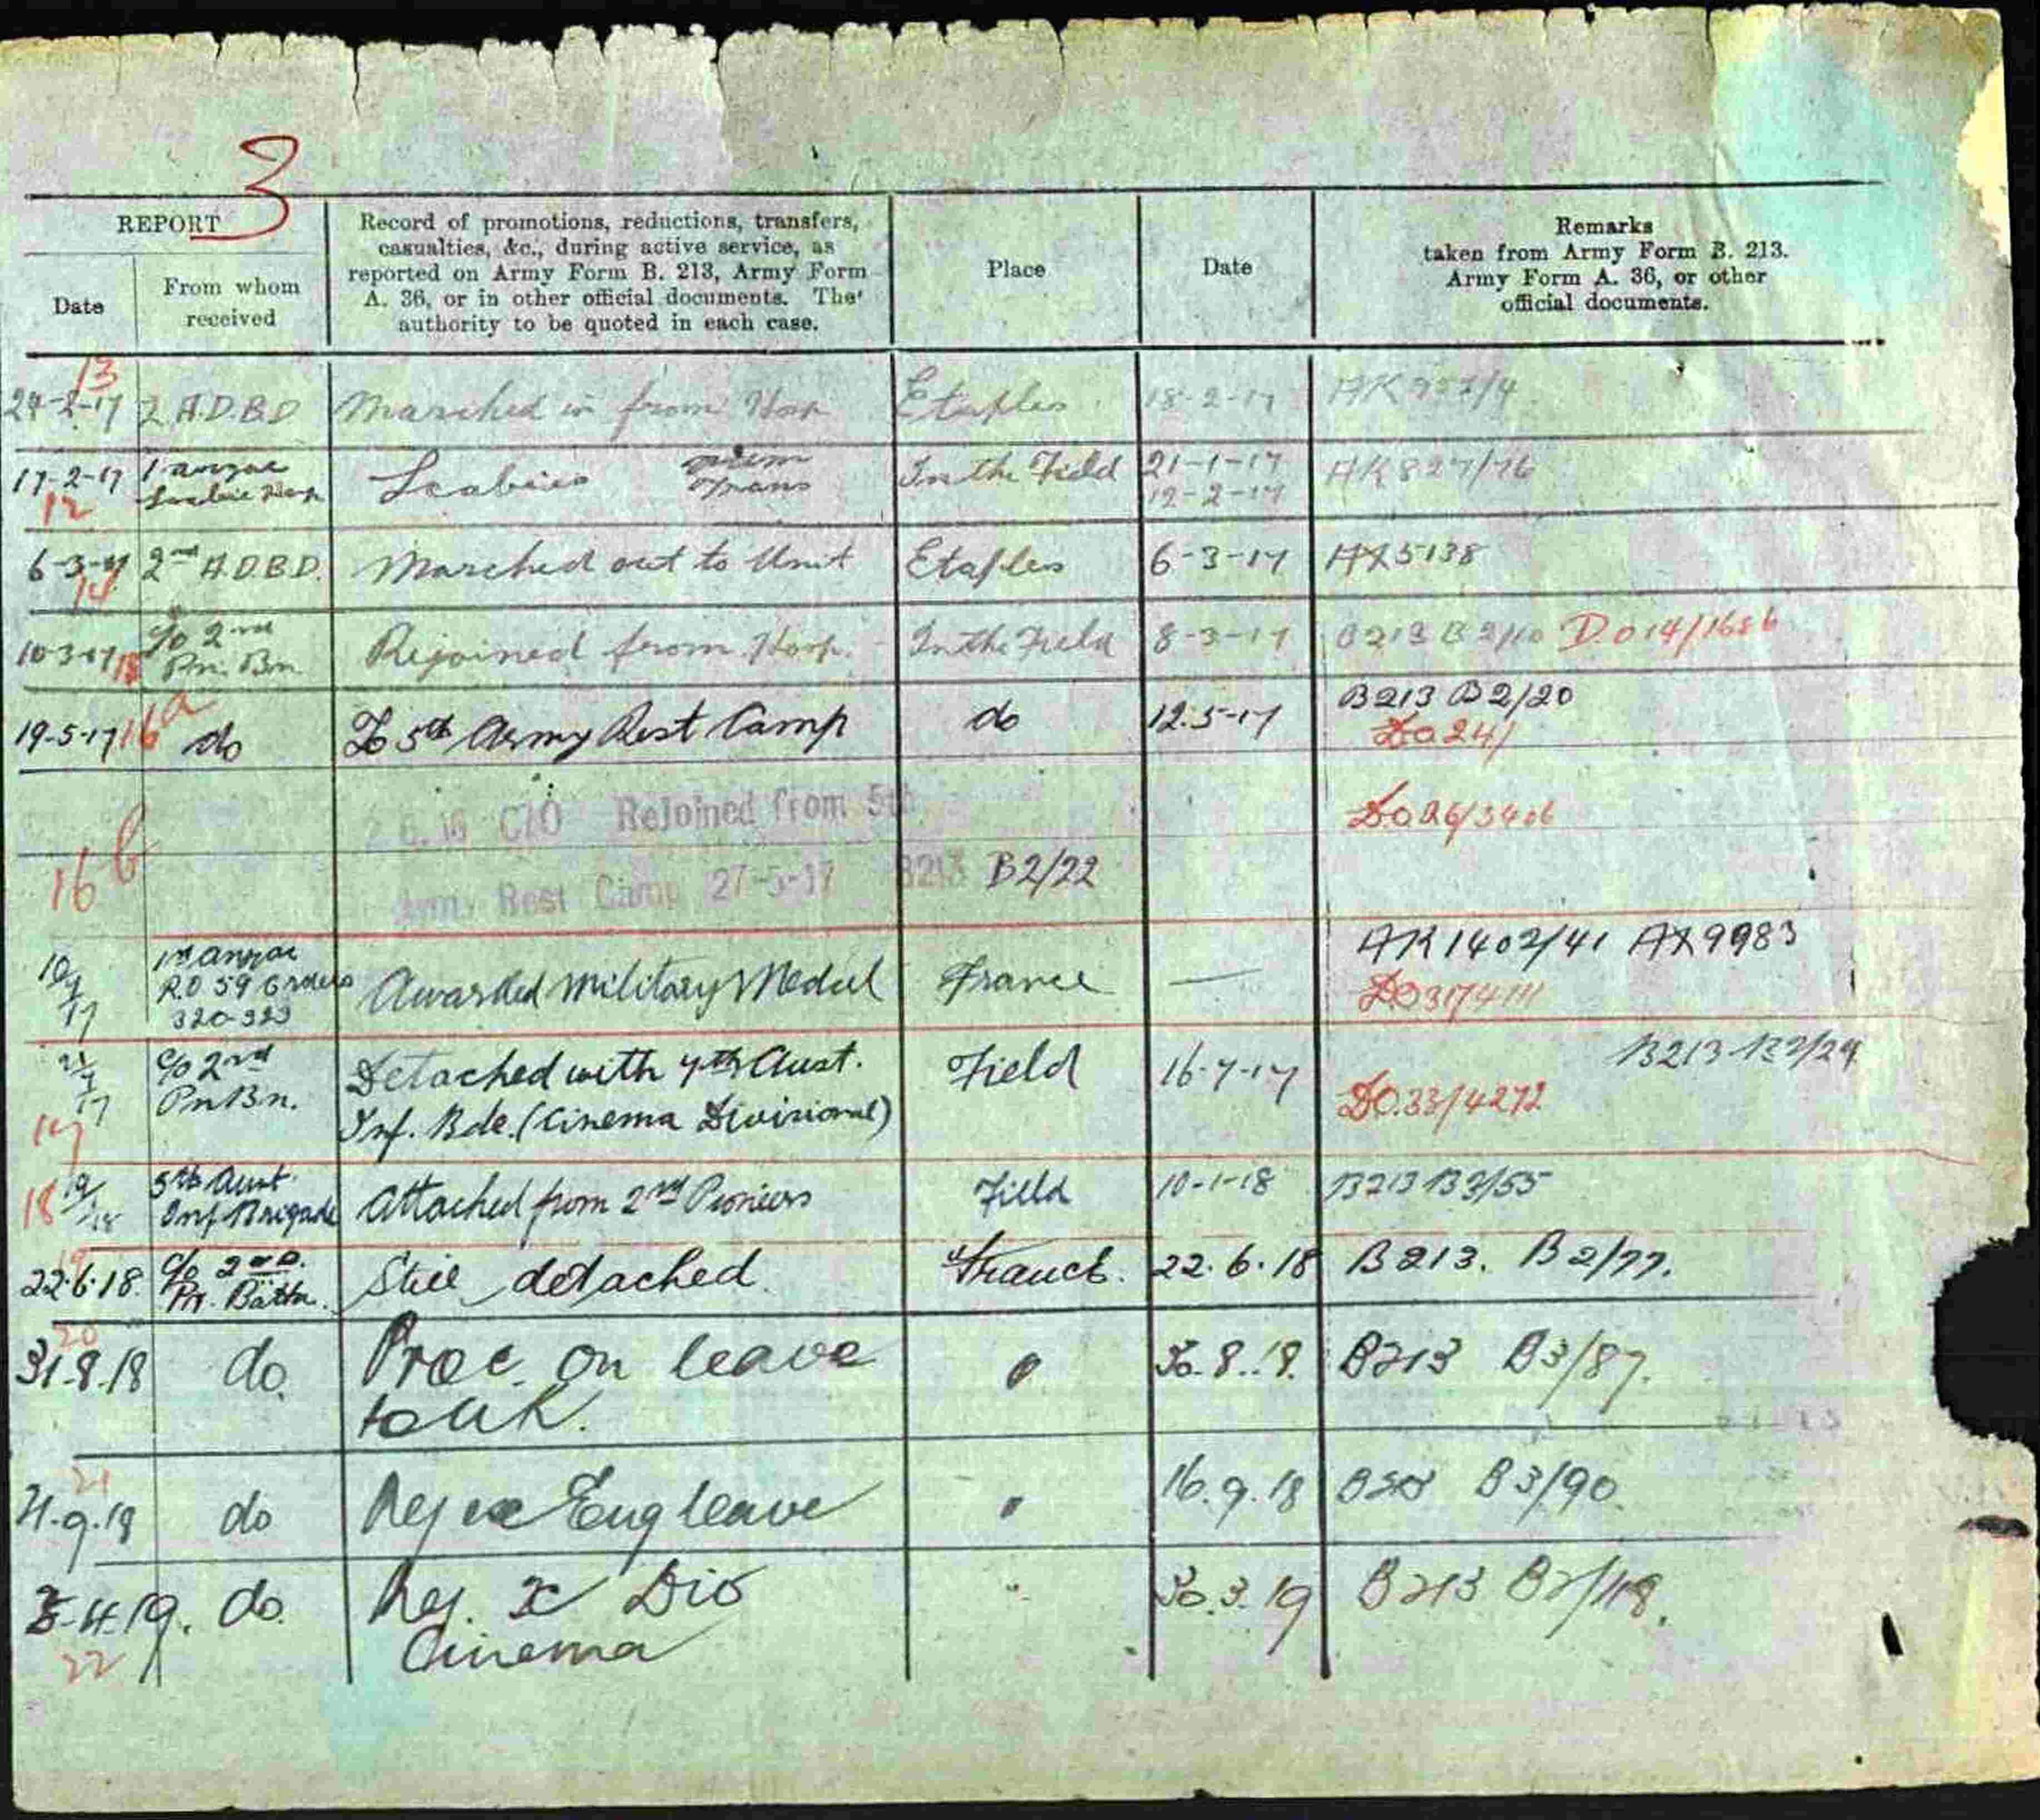 3
REPORT
Date
From whom
received
Record of promotions, reductions, transfers,
casualties, &c., during active service, as
reported on Army Form B. 213, Army Form
A. 36, or in other official documents. The
authority to be quoted in each case.
Place
Date
Remarks
taken from Army Form B. 213.
Army Form A. 36, or other
official documents.
13
24-2-17 2 A.D.B.D Marched in from Hosp Etaples 18-2-17 AK 937/4
17-2-17 1 Anzac Scabies In the Field 21-1-17 AK 827/76
12 Scabie Hosp Trans 12-2-17
6-3-17 2nd A.D.B.D. Marched out to Unit Etaples 6-3-17 AX5138
14
10-3-17 C/o 2nd Rejoined from Hosp. In the Field 8-3-17 B213 B2/10 DO14/1686
15 Pn. Bn
19-5-17 16a do To 5th Army Rest Camp do 12.5-17 B213 B2/20
DO241
C/O Rejoined from 5th DO26/3406
16b
Army Rest Camp 27-5-17 B213 B2/22
10/7/17 1st Anzac Awarded Military Medal France — AK1402/41 AX9983
R.O 59 Orders
320-323
21/7/17 C/o 2nd Detached with 7th Aust. Field 16-7-17 B213 B2/29
Pn Bn. Inf. Bde. (Cinema Divisional) DO.33/4272
17
18 5th Aust. Attached from 2nd Pioneers Field 10-1-18 B213 B3/55
Inf Brigade
19
22.6.18. C/o 2nd Still detached. France. 22.6.18 B213. B2/77.
Pn. Battn.
20
31.8.18 do. Proc. on leave " 30.8.18. B213 B3/87.
to UK.
21
21.9.18 do Rej ex Eng leave " 16.9.18 B213 B3/90.
5-4-19. do. Rej. X Div " 30.3.19 B213 B2/118.
22 Cinema